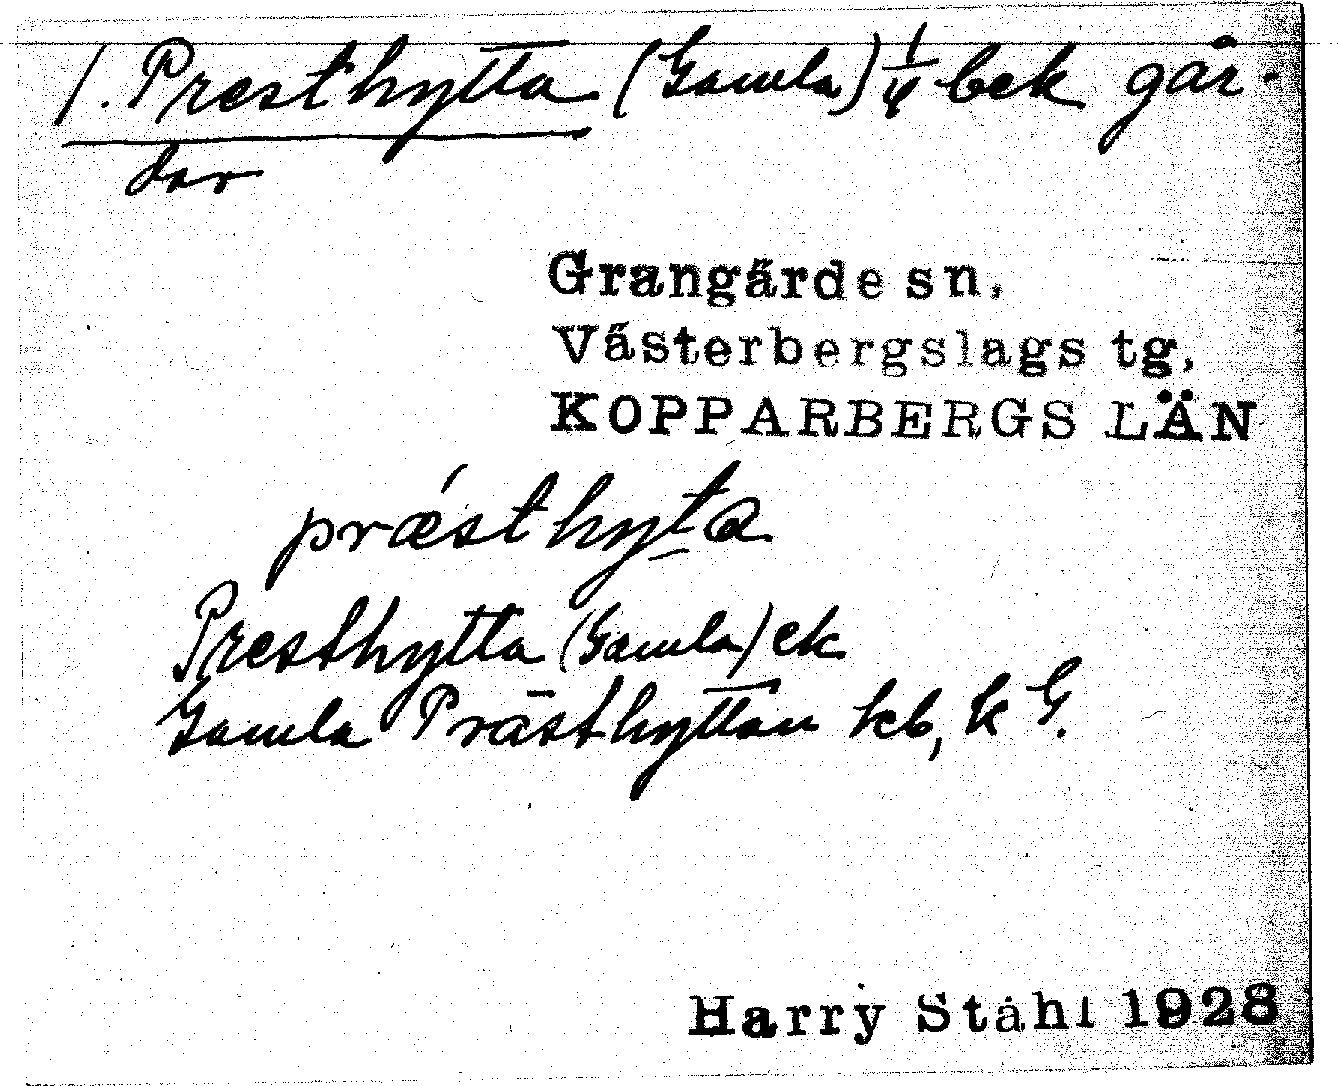 1. Presthytta (Gamla) 1/4 bek går-
dar
Grangärde sn,
Västerbergslags tg,
KOPPARBERGS LÄN
prǽsthyta
Presthytta (Gamla) ek
Gamla Prästhyttan kb, k G.
Harry Ståhl 1928